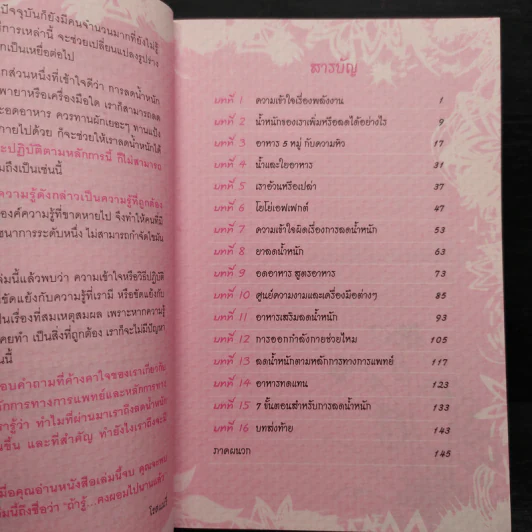 ปัจจุบันก็ยังมีคนจำนวนมากที่ยังไม่รู้
การเหล่านี้ จะช่วยเปลี่ยนแปลงรูปร่าง
เป็นเหยื่อต่อไป
ส่วนหนึ่งที่เข้าใจดีว่า การลดน้ำหนัก
ยาหรือเครื่องมือใด เราก็สามารถลด
อดอาหาร ควรทานผักเยอะๆ ทานแป้ง
กายไปด้วย ก็จะช่วยให้เราลดน้ำหนักได้
ปฏิบัติตามหลักการนี้ ก็ไม่สามารถ
ถึงเป็นเช่นนี้
ความรู้ดังกล่าวเป็นความรู้ที่ถูกต้อง
องค์ความรู้ที่ขาดหายไป จึงทำให้คนที่มี
นาการระดับหนึ่ง ไม่สามารถกำจัดไขมัน
เล่มนี้แล้วพบว่า ความเข้าใจหรือวิธีปฏิบัติ
ขัดแย้งกับความรู้ที่เรามี หรือขัดแย้งกับ
เป็นเรื่องที่สมเหตุสมผล เพราะหากความรู้
คยทำ เป็นสิ่งที่ถูกต้อง เราก็จะไม่มีปัญหา
นี้
อบคำถามที่ค้างคาใจของเราเกี่ยวกับ
ลักการทางการแพทย์และหลักการทาง
ารู้ว่า ทำไมที่ผ่านมาเราถึงลดน้ำหนัก
ขึ้น และที่สำคัญ ทำยังไงเราถึงจะมี
เมื่อคุณอ่านหนังสือเล่มนี้จบ คุณจะพบ
มนี้ถึงชื่อว่า "ถ้ารู้...คงผอมไปนานแล้ว"
สารบัญ
บทที่ 1 ความเข้าใจเรื่องพลังงาน 1
บทที่ 2 น้ำหนักของเราเพิ่มหรือลดได้อย่างไร 9
บทที่ 3 อาหาร 5 หมู่ กับความหิว 17
บทที่ 4 น้ำและใยอาหาร 31
บทที่ 5 เราอ้วนหรือเปล่า 37
บทที่ 6 โยโย่เอฟเฟกต์ 47
บทที่ 7 ความเข้าใจผิดเรื่องการลดน้ำหนัก 53
บทที่ 8 ยาลดน้ำหนัก 63
บทที่ 9 อดอาหาร สูตรอาหาร 73
บทที่ 10 ศูนย์ความงามและเครื่องมือต่างๆ 85
บทที่ 11 อาหารเสริมลดน้ำหนัก 93
บทที่ 12 การออกกำลังกายช่วยไหม 105
บทที่ 13 ลดน้ำหนักตามหลักการทางการแพทย์ 117
บทที่ 14 อาหารทดแทน 123
บทที่ 15 7 ขั้นตอนสำหรับการลดน้ำหนัก 133
บทที่ 16 บทส่งท้าย 143
ภาคผนวก 145